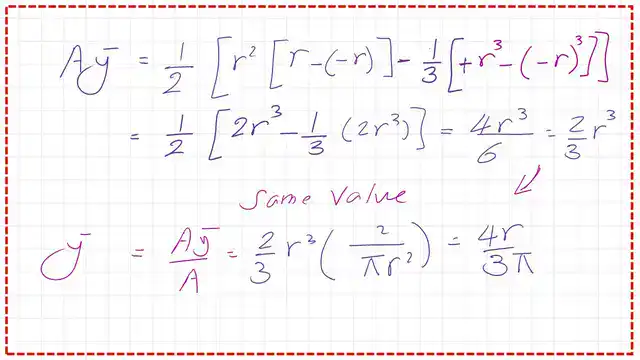 Aȳ = 1/2 [r² [r-(-r)] - 1/3 [+r³-(-r)³]]
= 1/2 [2r³ - 1/3 (2r³)] = 4r³/6 = 2/3 r³
Same Value
ȳ = Aȳ/A = 2/3 r³ (2/πr²) = 4r/3π